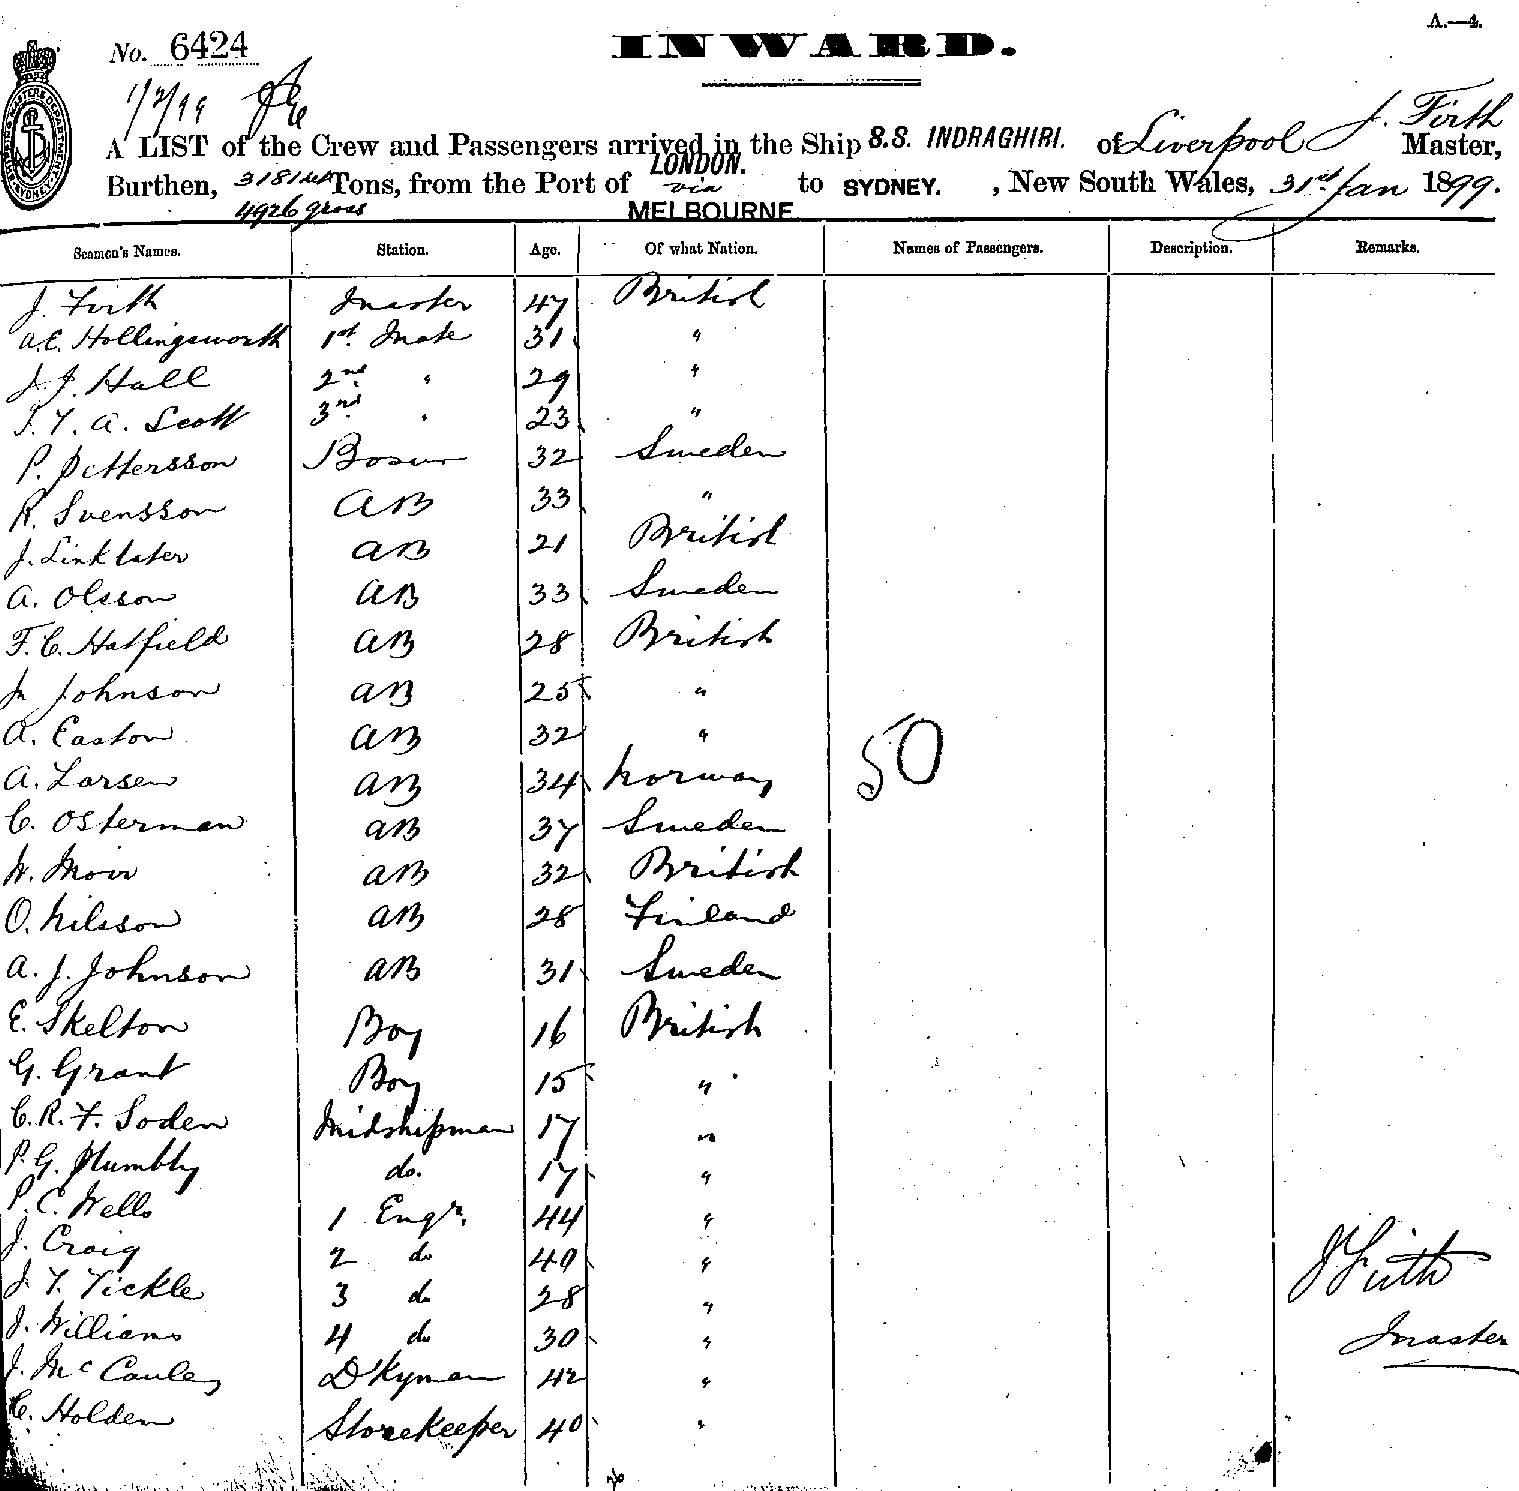 A.—4.
No. 6424
INWARD.
1/2/99
J. Firth
A LIST of the Crew and Passengers arrived in the Ship S.S. INDRAGHIRI. of Liverpool Master,
Burthen, 3181 Tons, from the Port of LONDON. via MELBOURNE to SYDNEY. , New South Wales, 31st Jan 1899.
4926 gross
Seamen's Names. Station. Age. Of what Nation. Names of Passengers. Description. Remarks.
J. Firth Master 47 British
A.C. Hollingsworth 1st Mate 31 "
J. J. Hall 2nd " 29 "
T. A. Scott 3rd " 23 "
P. Pettersson Bosun 32 Sweden
R. Svensson AB 33 "
J. Linklater AB 21 British
A. Olsson AB 33 Sweden
F. C. Hatfield AB 28 British
Johnson AB 25 "
A. Easton AB 32 "
50
A. Larsen AB 34 Norway
C. Osterman AB 37 Sweden
W. Moir AB 32 British
O. Nilsson AB 28 Finland
A. J. Johnson AB 31 Sweden
E. Skelton Boy 16 British
G. Grant Boy 15 "
C. R. F. Soden Midshipman 17 "
P. G. Plumbly do. 17 "
P. C. Wells 1 Engr. 44 "
J. Craig 2 do 40 "
J. T. Tickle 3 do 28 "
J Firth
J. Williams 4 do 30 "
Master
J. McCauley D'kyman 42 "
C. Holden Storekeeper 40 "
26